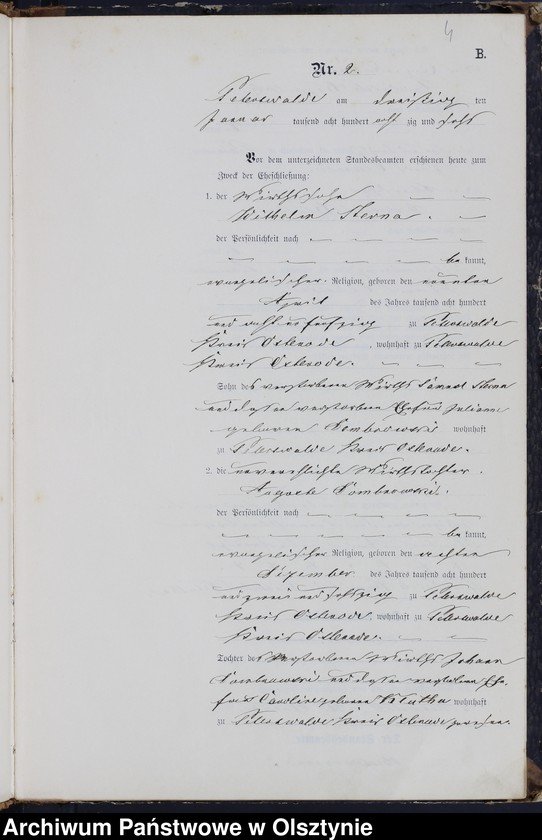 4
B.
Nr. 2.
Peterswalde am dreißig ten
Januar tausend acht hundert acht zig und sechs
Vor dem unterzeichneten Standesbeamten erschienen heute zum
Zweck der Eheschließung:
1. der Wirthssohn
Wilhelm Sterna.
der Persönlichkeit nach
be kannt,
evangelischer Religion, geboren den neunten
April des Jahres tausend acht hundert
und acht und fünfzig zu Peterswalde
Kreis Osterode, wohnhaft zu Peterswalde
Kreis Osterode.
Sohn des verstorbenen Wirths Samuel Sterna
und dessen verstorbenen Ehefrau Juliane
geborenen Dombrowski wohnhaft
zu Peterswalde Kreis Osterode.
2. die unverehlichte Wirthstochter
Auguste Dombrowski.
der Persönlichkeit nach
be kannt,
evangelischer Religion, geboren den achten
Dezember des Jahres tausend acht hundert
und zwei und sechszig zu Peterswalde
Kreis Osterode, wohnhaft zu Peterswalde
Kreis Osterode.
Tochter des verstorbenen Wirths Johann
Dombrowski und dessen verstorbenen Ehe-
frau Caroline geborenen wohnhaft
zu Peterswalde Kreis Osterode gewesen.
Archiwum Państwowe w Olsztynie